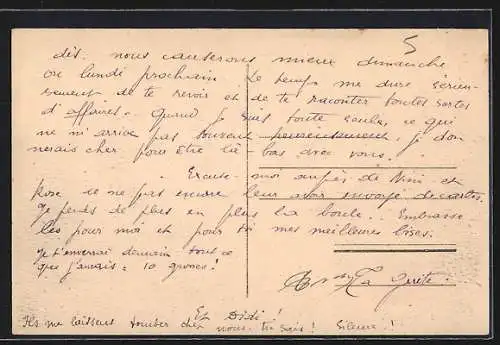 5
dis. nous causerons mieux dimanche
ou lundi prochain. Le temps me dure sérieu-
sement de te revoir et de te raconter toutes sortes
d'affaires. Quand je suis toute seule, ce qui
ne m'arrive pas souvent heureusement, je don-
nerais cher pour être là-bas avec vous.
Excuse-moi auprès de Nini et
Rose de ne pas encore leur avoir envoyé de cartes.
Je perds de plus en plus la boule. Embrasse
les pour moi et pour toi mes meilleures bises.
Je t'enverrai demain tout ce
que j'aurais: 10 grosses!
Ta Guite.
Et Didi!
Ils me laissent tomber chez nous. tu sais! Silence!